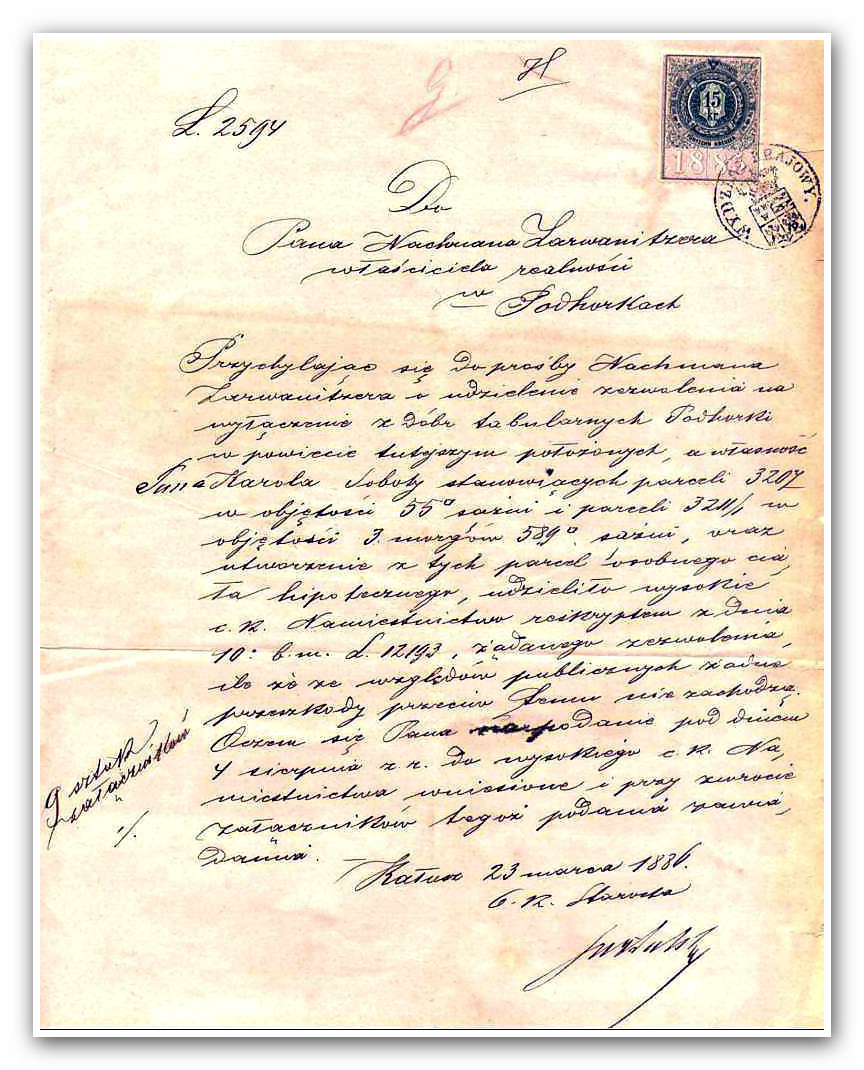 H
L. 2594
15 kr
1885
WYDZIAŁ KRAJOWY.
Do
Pana Nachmana Zarwanitzera
właściciela realności
w Podhorkach
Przychylając się do prośby Nachmana
Zarwanitzera o udzielenie zezwolenia na
wyłączenie z dóbr tabularnych Podhorki
w powiecie tutejszym położonych, a własność
Pana Karola Soboty stanowiących parceli 3207
w objętości 55° sążni i parceli 3211/1 w
objętości 3. morgów 589° sążni, oraz
utworzenie z tych parcel osobnego cia,
ła hipotecznego, udzieliło wysokie
c. k. Namiestnictwo reskryptem z dnia
10. b.m. L. 12193, żądanego zezwolenia,
ile że ze względów publicznych żadne
przeszkody przeciw temu nie zachodzą.
Oczem się Pana na podanie pod dniem
4 sierpnia z.r. do wysokiego c. k. Na,
miestnictwa wniesione i przy zwrocie
załączników tegoż podania zawia,
damia.
9 sztuk
załączników
./.
Kałusz 23 marca 1886.
C. k. Starosta